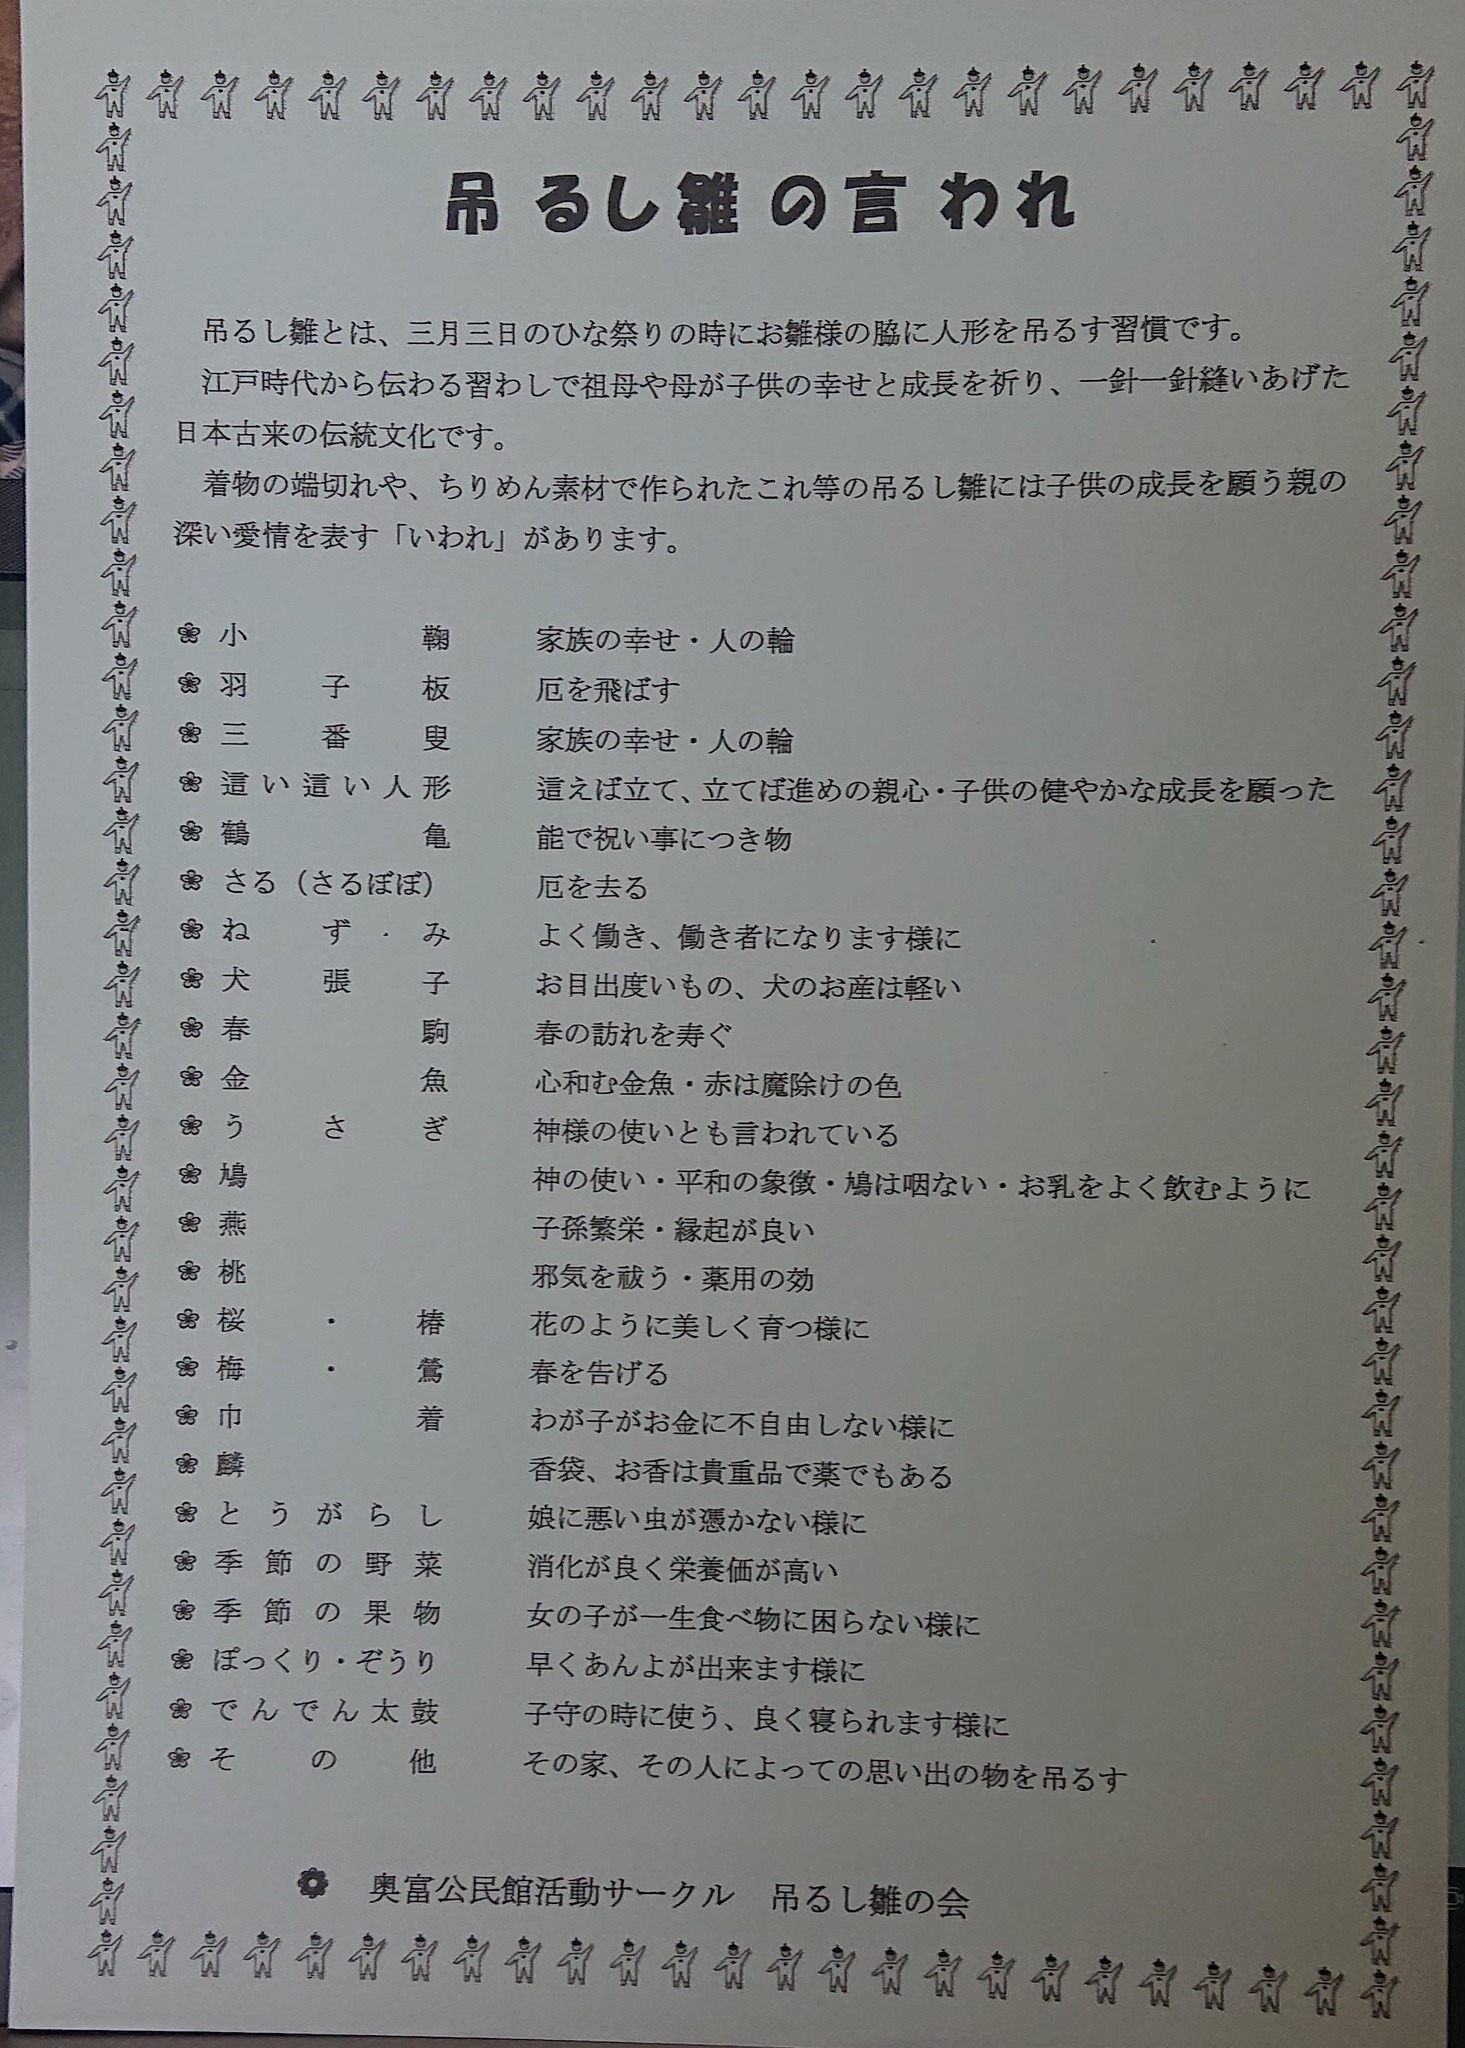 吊るし雛の言われ
吊るし雛とは、三月三日のひな祭りの時にお雛様の脇に人形を吊るす習慣です。
江戸時代から伝わる習わしで祖母や母が子供の幸せと成長を祈り、一針一針縫いあげた
日本古来の伝統文化です。
着物の端切れや、ちりめん素材で作られたこれ等の吊るし雛には子供の成長を願う親の
深い愛情を表す「いわれ」があります。
❀ 小鞠 家族の幸せ・人の輪
❀ 羽子板 厄を飛ばす
❀ 三番叟 家族の幸せ・人の輪
❀ 這い這い人形 這えば立て、立てば進めの親心・子供の健やかな成長を願った
❀ 鶴亀 能で祝い事につき物
❀ さる（さるぼぼ） 厄を去る
❀ ねずみ よく働き、働き者になります様に
❀ 犬張子 お目出度いもの、犬のお産は軽い
❀ 春駒 春の訪れを寿ぐ
❀ 金魚 心和む金魚・赤は魔除けの色
❀ うさぎ 神様の使いとも言われている
❀ 鳩 神の使い・平和の象徴・鳩は咽ない・お乳をよく飲むように
❀ 燕 子孫繁栄・縁起が良い
❀ 桃 邪気を祓う・薬用の効
❀ 桜・椿 花のように美しく育つ様に
❀ 梅・鶯 春を告げる
❀ 巾着 わが子がお金に不自由しない様に
❀ 麟 香袋、お香は貴重品で薬でもある
❀ とうがらし 娘に悪い虫が憑かない様に
❀ 季節の野菜 消化が良く栄養価が高い
❀ 季節の果物 女の子が一生食べ物に困らない様に
❀ ぽっくり・ぞうり 早くあんよが出来ます様に
❀ でんでん太鼓 子守の時に使う、良く寝られます様に
❀ その他 その家、その人によっての思い出の物を吊るす
❁ 奥富公民館活動サークル 吊るし雛の会